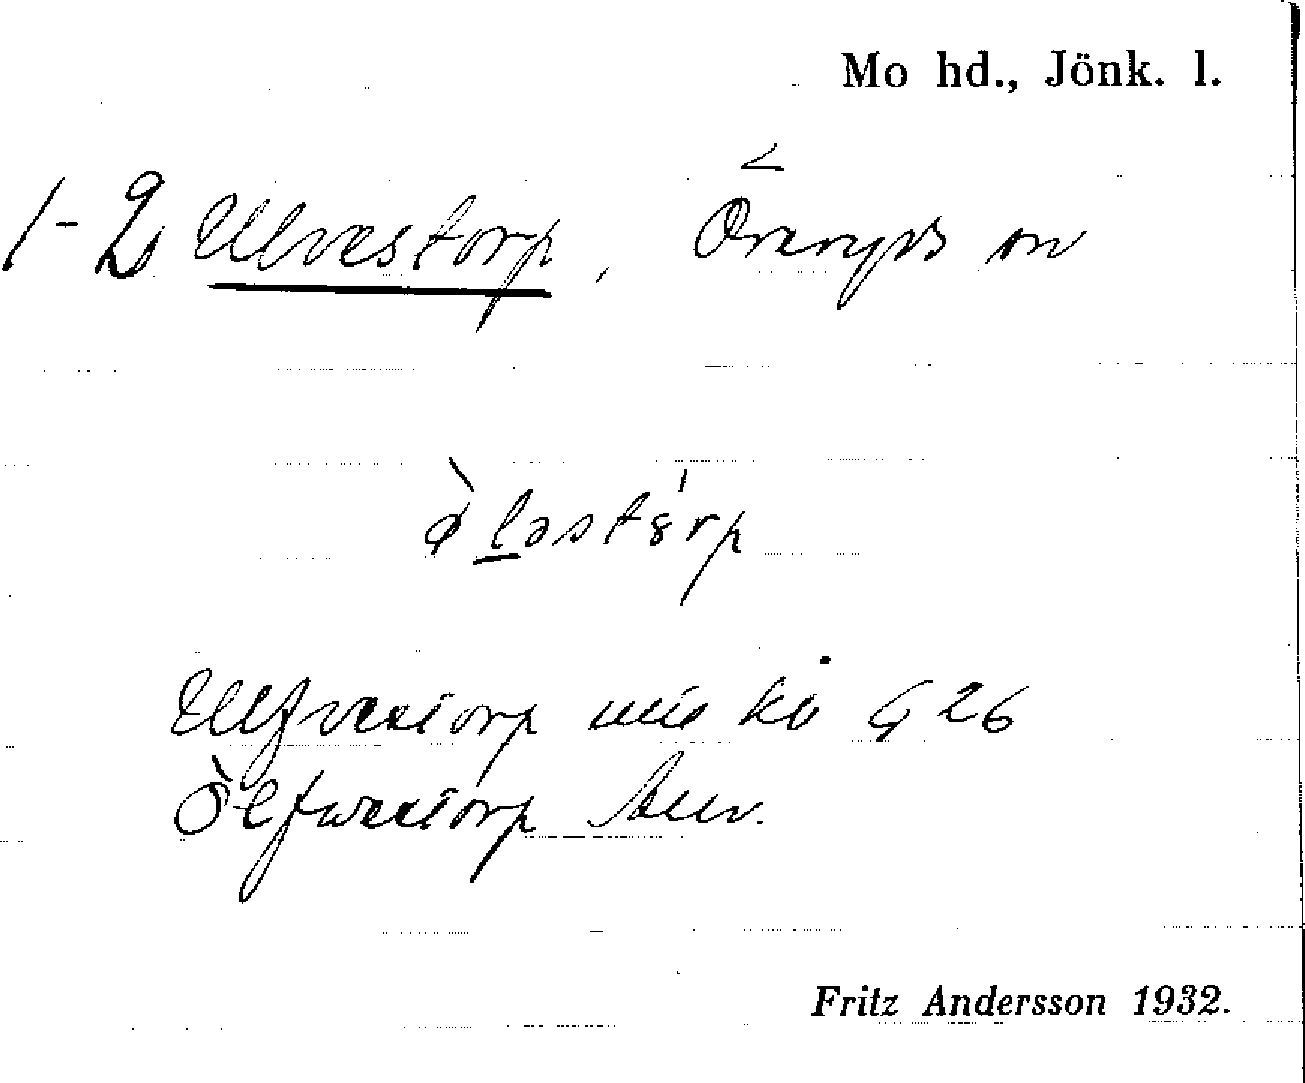 Mo hd., Jönk. l.
1-2 Ulvestorp, Öreryds sn
ø̀ ləstɵ́rp
Ulfvestorp G 26
Ölfwestorp
Fritz Andersson 1932.